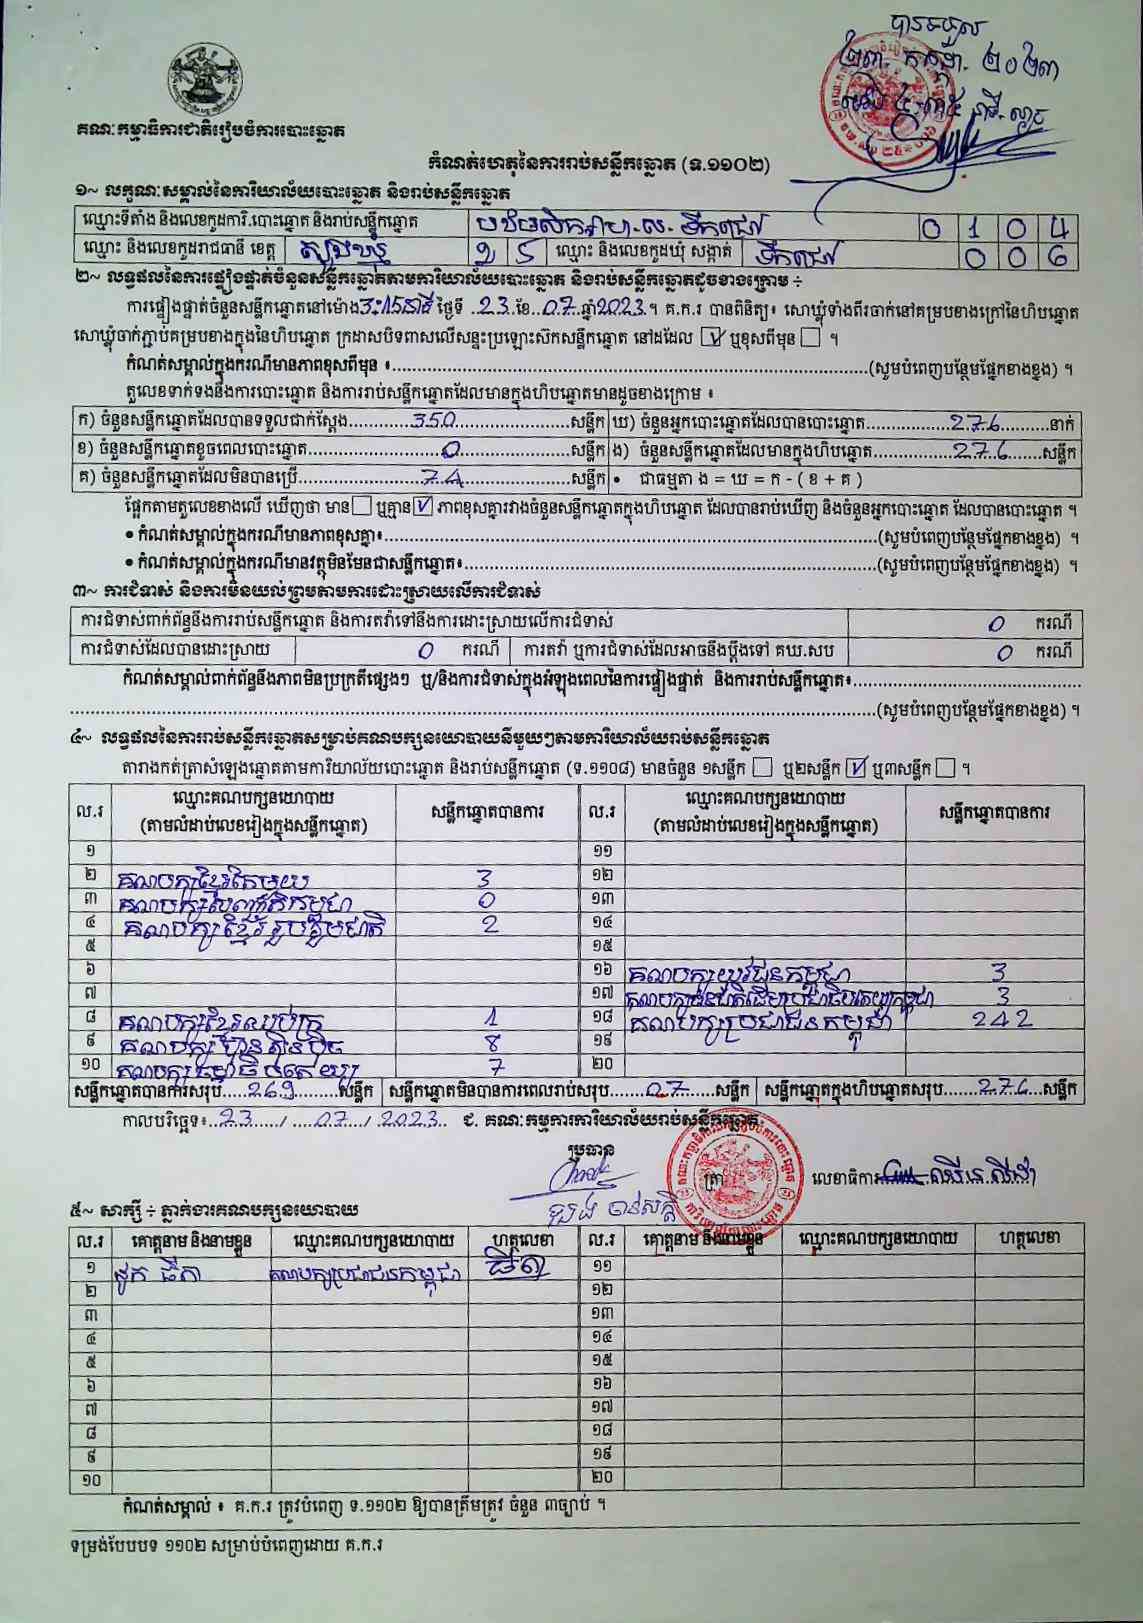 បានទទួល
២៣. កក្កដា. ២០២៣
គណៈកម្មាធិការជាតិរៀបចំការបោះឆ្នោត
កំណត់ហេតុនៃការរាប់សន្លឹកឆ្នោត (ទ.១១០២)
១~ លក្ខណៈសម្គាល់នៃការិយាល័យបោះឆ្នោត និងរាប់សន្លឹកឆ្នោត
ឈ្មោះទីតាំង និងលេខកូដការិ.បោះឆ្នោត និងរាប់សន្លឹកឆ្នោត 0 1 0 4
ឈ្មោះ និងលេខកូដរាជធានី ខេត្ត ត្បូងឃ្មុំ 2 5 ឈ្មោះ និងលេខកូដឃុំ សង្កាត់ ទឹកជ្រៅ 0 0 6
២~ លទ្ធផលនៃការផ្ទៀងផ្ទាត់ចំនួនសន្លឹកឆ្នោតតាមការិយាល័យបោះឆ្នោត និងរាប់សន្លឹកឆ្នោតដូចខាងក្រោម ÷
ការផ្ទៀងផ្ទាត់ចំនួនសន្លឹកឆ្នោតនៅម៉ោង 3:15នាទី ថ្ងៃទី 23 ខែ 07 ឆ្នាំ 2023 ។ គ.ក.រ បានពិនិត្យ៖ សោឃ្លុំទាំងពីរចាក់នៅគម្របខាងក្រៅនៃហិបឆ្នោត
សោឃ្លុំចាក់ភ្ជាប់គម្របខាងក្នុងនៃហិបឆ្នោត ក្រដាសបិទពាសលើសន្ទះប្រឡោះស៊កសន្លឹកឆ្នោត នៅដដែល ☑ ឬខុសពីមុន ☐ ។
កំណត់សម្គាល់ក្នុងករណីមានភាពខុសពីមុន ៖ (សូមបំពេញបន្ថែមផ្នែកខាងខ្នង) ។
តួលេខទាក់ទងនឹងការបោះឆ្នោត និងការរាប់សន្លឹកឆ្នោតដែលមានក្នុងហិបឆ្នោតមានដូចខាងក្រោម ៖
ក) ចំនួនសន្លឹកឆ្នោតដែលបានទទួលជាក់ស្តែង 350 សន្លឹក ឃ) ចំនួនអ្នកបោះឆ្នោតដែលបានបោះឆ្នោត 276 នាក់
ខ) ចំនួនសន្លឹកឆ្នោតខូចពេលបោះឆ្នោត 0 សន្លឹក ង) ចំនួនសន្លឹកឆ្នោតដែលមានក្នុងហិបឆ្នោត 276 សន្លឹក
គ) ចំនួនសន្លឹកឆ្នោតដែលមិនបានប្រើ 74 សន្លឹក • ជាធម្មតា ង = ឃ = ក - ( ខ + គ )
ផ្អែកតាមតួលេខខាងលើ ឃើញថា មាន ☐ ឬគ្មាន ☑ ភាពខុសគ្នារវាងចំនួនសន្លឹកឆ្នោតក្នុងហិបឆ្នោត ដែលបានរាប់ឃើញ និងចំនួនអ្នកបោះឆ្នោត ដែលបានបោះឆ្នោត ។
• កំណត់សម្គាល់ក្នុងករណីមានភាពខុសគ្នា៖ (សូមបំពេញបន្ថែមផ្នែកខាងខ្នង) ។
• កំណត់សម្គាល់ក្នុងករណីមានវត្ថុមិនមែនជាសន្លឹកឆ្នោត៖ (សូមបំពេញបន្ថែមផ្នែកខាងខ្នង) ។
៣~ ការជំទាស់ និងការមិនយល់ព្រមតាមការដោះស្រាយលើការជំទាស់
ការជំទាស់ពាក់ព័ន្ធនឹងការរាប់សន្លឹកឆ្នោត និងការតវ៉ាទៅនឹងការដោះស្រាយលើការជំទាស់ 0 ករណី
ការជំទាស់ដែលបានដោះស្រាយ 0 ករណី ការតវ៉ា ឬការជំទាស់ដែលអាចនឹងប្តឹងទៅ គឃ.សប 0 ករណី
កំណត់សម្គាល់ពាក់ព័ន្ធនឹងភាពមិនប្រក្រតីផ្សេងៗ ឬ/និងការជំទាស់ក្នុងអំឡុងពេលនៃការផ្ទៀងផ្ទាត់ និងការរាប់សន្លឹកឆ្នោត៖
(សូមបំពេញបន្ថែមផ្នែកខាងខ្នង) ។
៤~ លទ្ធផលនៃការរាប់សន្លឹកឆ្នោតសម្រាប់គណបក្សនយោបាយនីមួយៗតាមការិយាល័យរាប់សន្លឹកឆ្នោត
តារាងកត់ត្រាសំឡេងឆ្នោតតាមការិយាល័យបោះឆ្នោត និងរាប់សន្លឹកឆ្នោត (ទ.១១០៨) មានចំនួន ១សន្លឹក ☐ ឬ២សន្លឹក ☑ ឬ៣សន្លឹក ☐ ។
ល.រ ឈ្មោះគណបក្សនយោបាយ សន្លឹកឆ្នោតបានការ ល.រ ឈ្មោះគណបក្សនយោបាយ សន្លឹកឆ្នោតបានការ
(តាមលំដាប់លេខរៀងក្នុងសន្លឹកឆ្នោត) (តាមលំដាប់លេខរៀងក្នុងសន្លឹកឆ្នោត)
១ ១១
២ គណបក្សខ្មែរតែមួយ 3 ១២
៣ 0 ១៣
៤ គណបក្សខ្មែររួបរួមជាតិ 2 ១៤
៥ ១៥
៦ ១៦ គណបក្សយុវជនកម្ពុជា 3
៧ ១៧ 3
៨ 1 ១៨ គណបក្សប្រជាជនកម្ពុជា 242
៩ 8 ១៩
១០ គណបក្សធម្មាធិបតេយ្យ 7 ២០
សន្លឹកឆ្នោតបានការសរុប 269 សន្លឹក សន្លឹកឆ្នោតមិនបានការពេលរាប់សរុប 07 សន្លឹក សន្លឹកឆ្នោតក្នុងហិបឆ្នោតសរុប 276 សន្លឹក
កាលបរិច្ឆេទ៖ 23 / 07 / 2023 ជ. គណៈកម្មការការិយាល័យរាប់សន្លឹកឆ្នោត
ប្រធាន
ត្រា លេខាធិការ
៥~ សាក្សី ÷ ភ្នាក់ងារគណបក្សនយោបាយ
ល.រ គោត្តនាម និងនាមខ្លួន ឈ្មោះគណបក្សនយោបាយ ហត្ថលេខា ល.រ គោត្តនាម និងនាមខ្លួន ឈ្មោះគណបក្សនយោបាយ ហត្ថលេខា
១ គណបក្សប្រជាជនកម្ពុជា ១១
២ ១២
៣ ១៣
៤ ១៤
៥ ១៥
៦ ១៦
៧ ១៧
៨ ១៨
៩ ១៩
១០ ២០
កំណត់សម្គាល់ ៖ គ.ក.រ ត្រូវបំពេញ ទ.១១០២ ឱ្យបានត្រឹមត្រូវ ចំនួន ៣ច្បាប់ ។
ទម្រង់បែបបទ ១១០២ សម្រាប់បំពេញដោយ គ.ក.រ